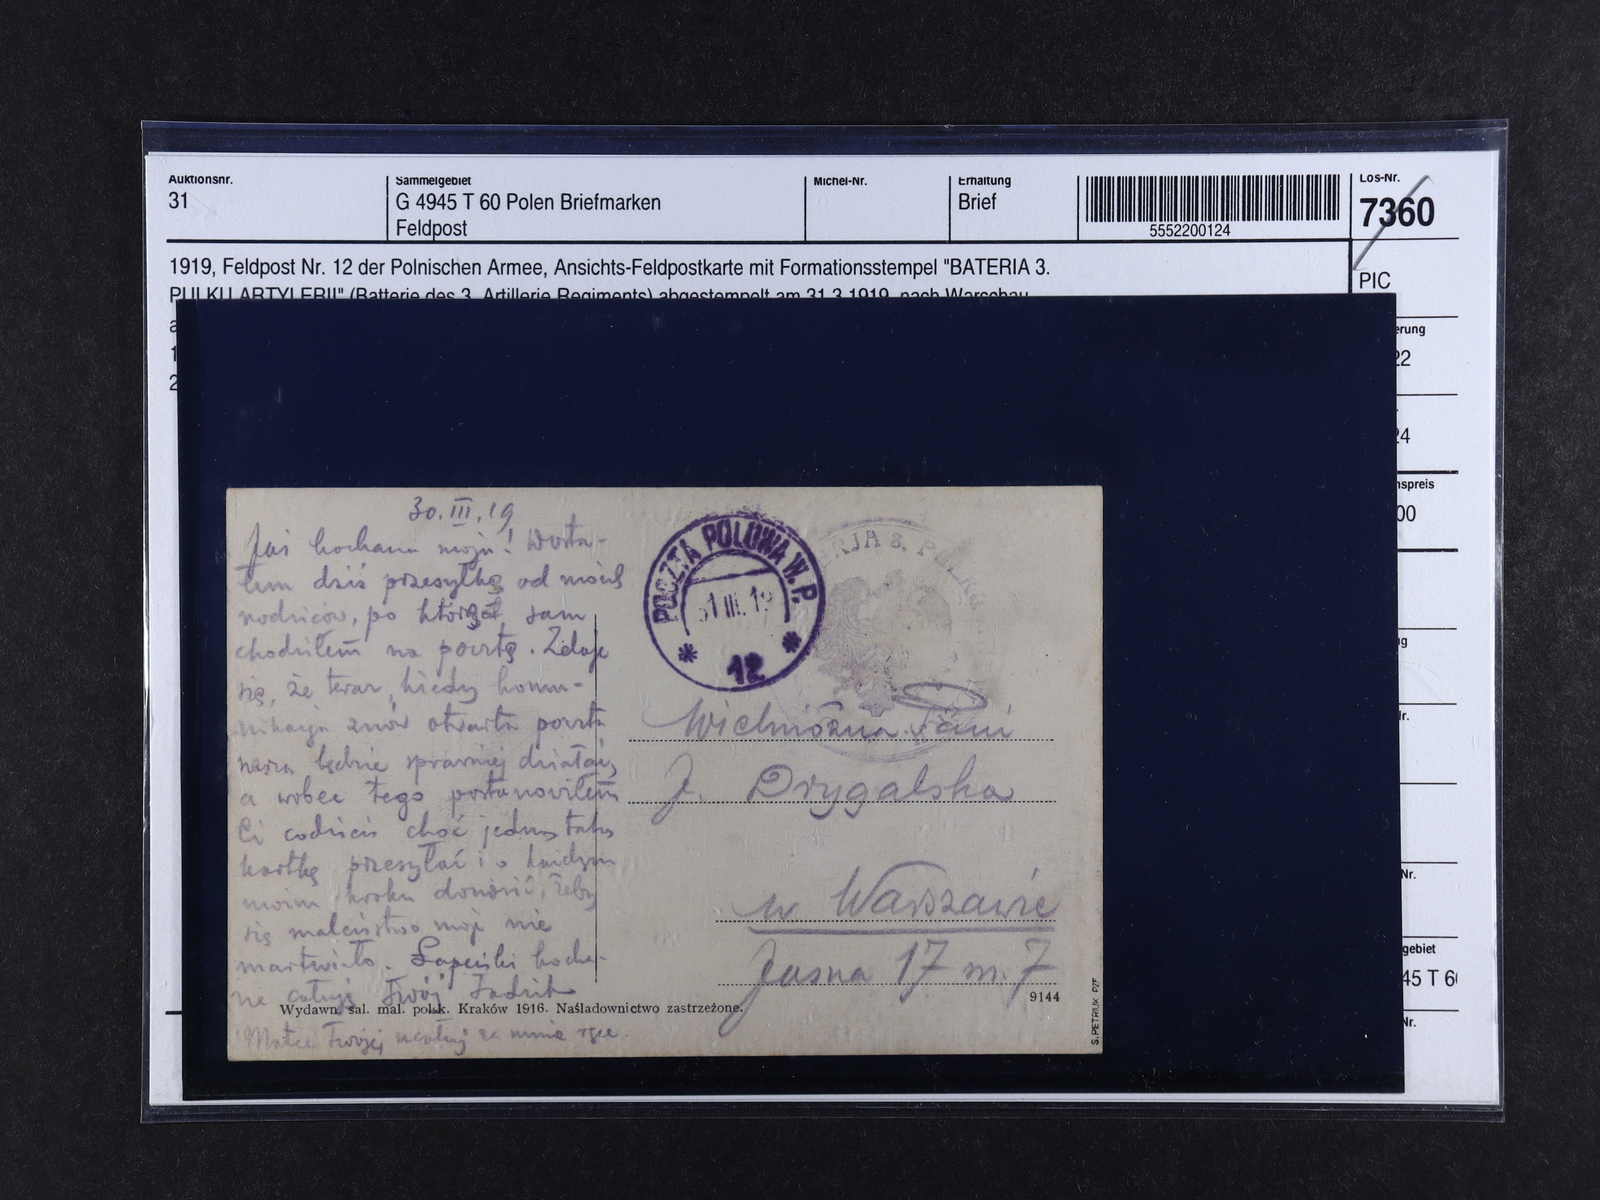 Auktionsnr.
31
Sammelgebiet
G 4945 T 60 Polen Briefmarken
Feldpost
Michel-Nr.
Erhaltung
Brief
5552200124
Los-Nr.
7360
1919, Feldpost Nr. 12 der Polnischen Armee, Ansichts-Feldpostkarte mit Formationsstempel "BATERIA 3.
PULKU ARTYLERII" (Batterie des 3. Artillerie Regiments) abgestempelt am 31.3.1919, nach Warschau
PIC
erung
22
24
nspreis
00
ng
lr.
Nr.
gebiet
45 T 6
Nr.
30.III.19
moja! Dosta-
łem dziś przesyłkę od moich
rodziców, po którą sam
chodziłem na pocztę. Zdaje
się, że teraz, kiedy komu-
nikacja znów otwarta poczta
nasza będzie sprawniej działać,
a wobec tego postanowiłem
Ci codzień choć jedną taką
kartkę przesyłać i o każdym
moim kroku donosić, żeby
się maleństwo moje nie
martwiło. Łapeńki kocha-
ne całuję Twój
Matce Twojej ucałuj za mnie ręce.
POCZTA POLOWA W.P.
31 III. 19
* 12 *
RJA 3. PUŁKU
Wielmożna Pani
J. Drygalska
w Warszawie
Jasna 17 m. 7
9144
Wydawn. sal. mal. polsk. Kraków 1916. Naśladownictwo zastrzeżone.
S. PETRIUK PZF